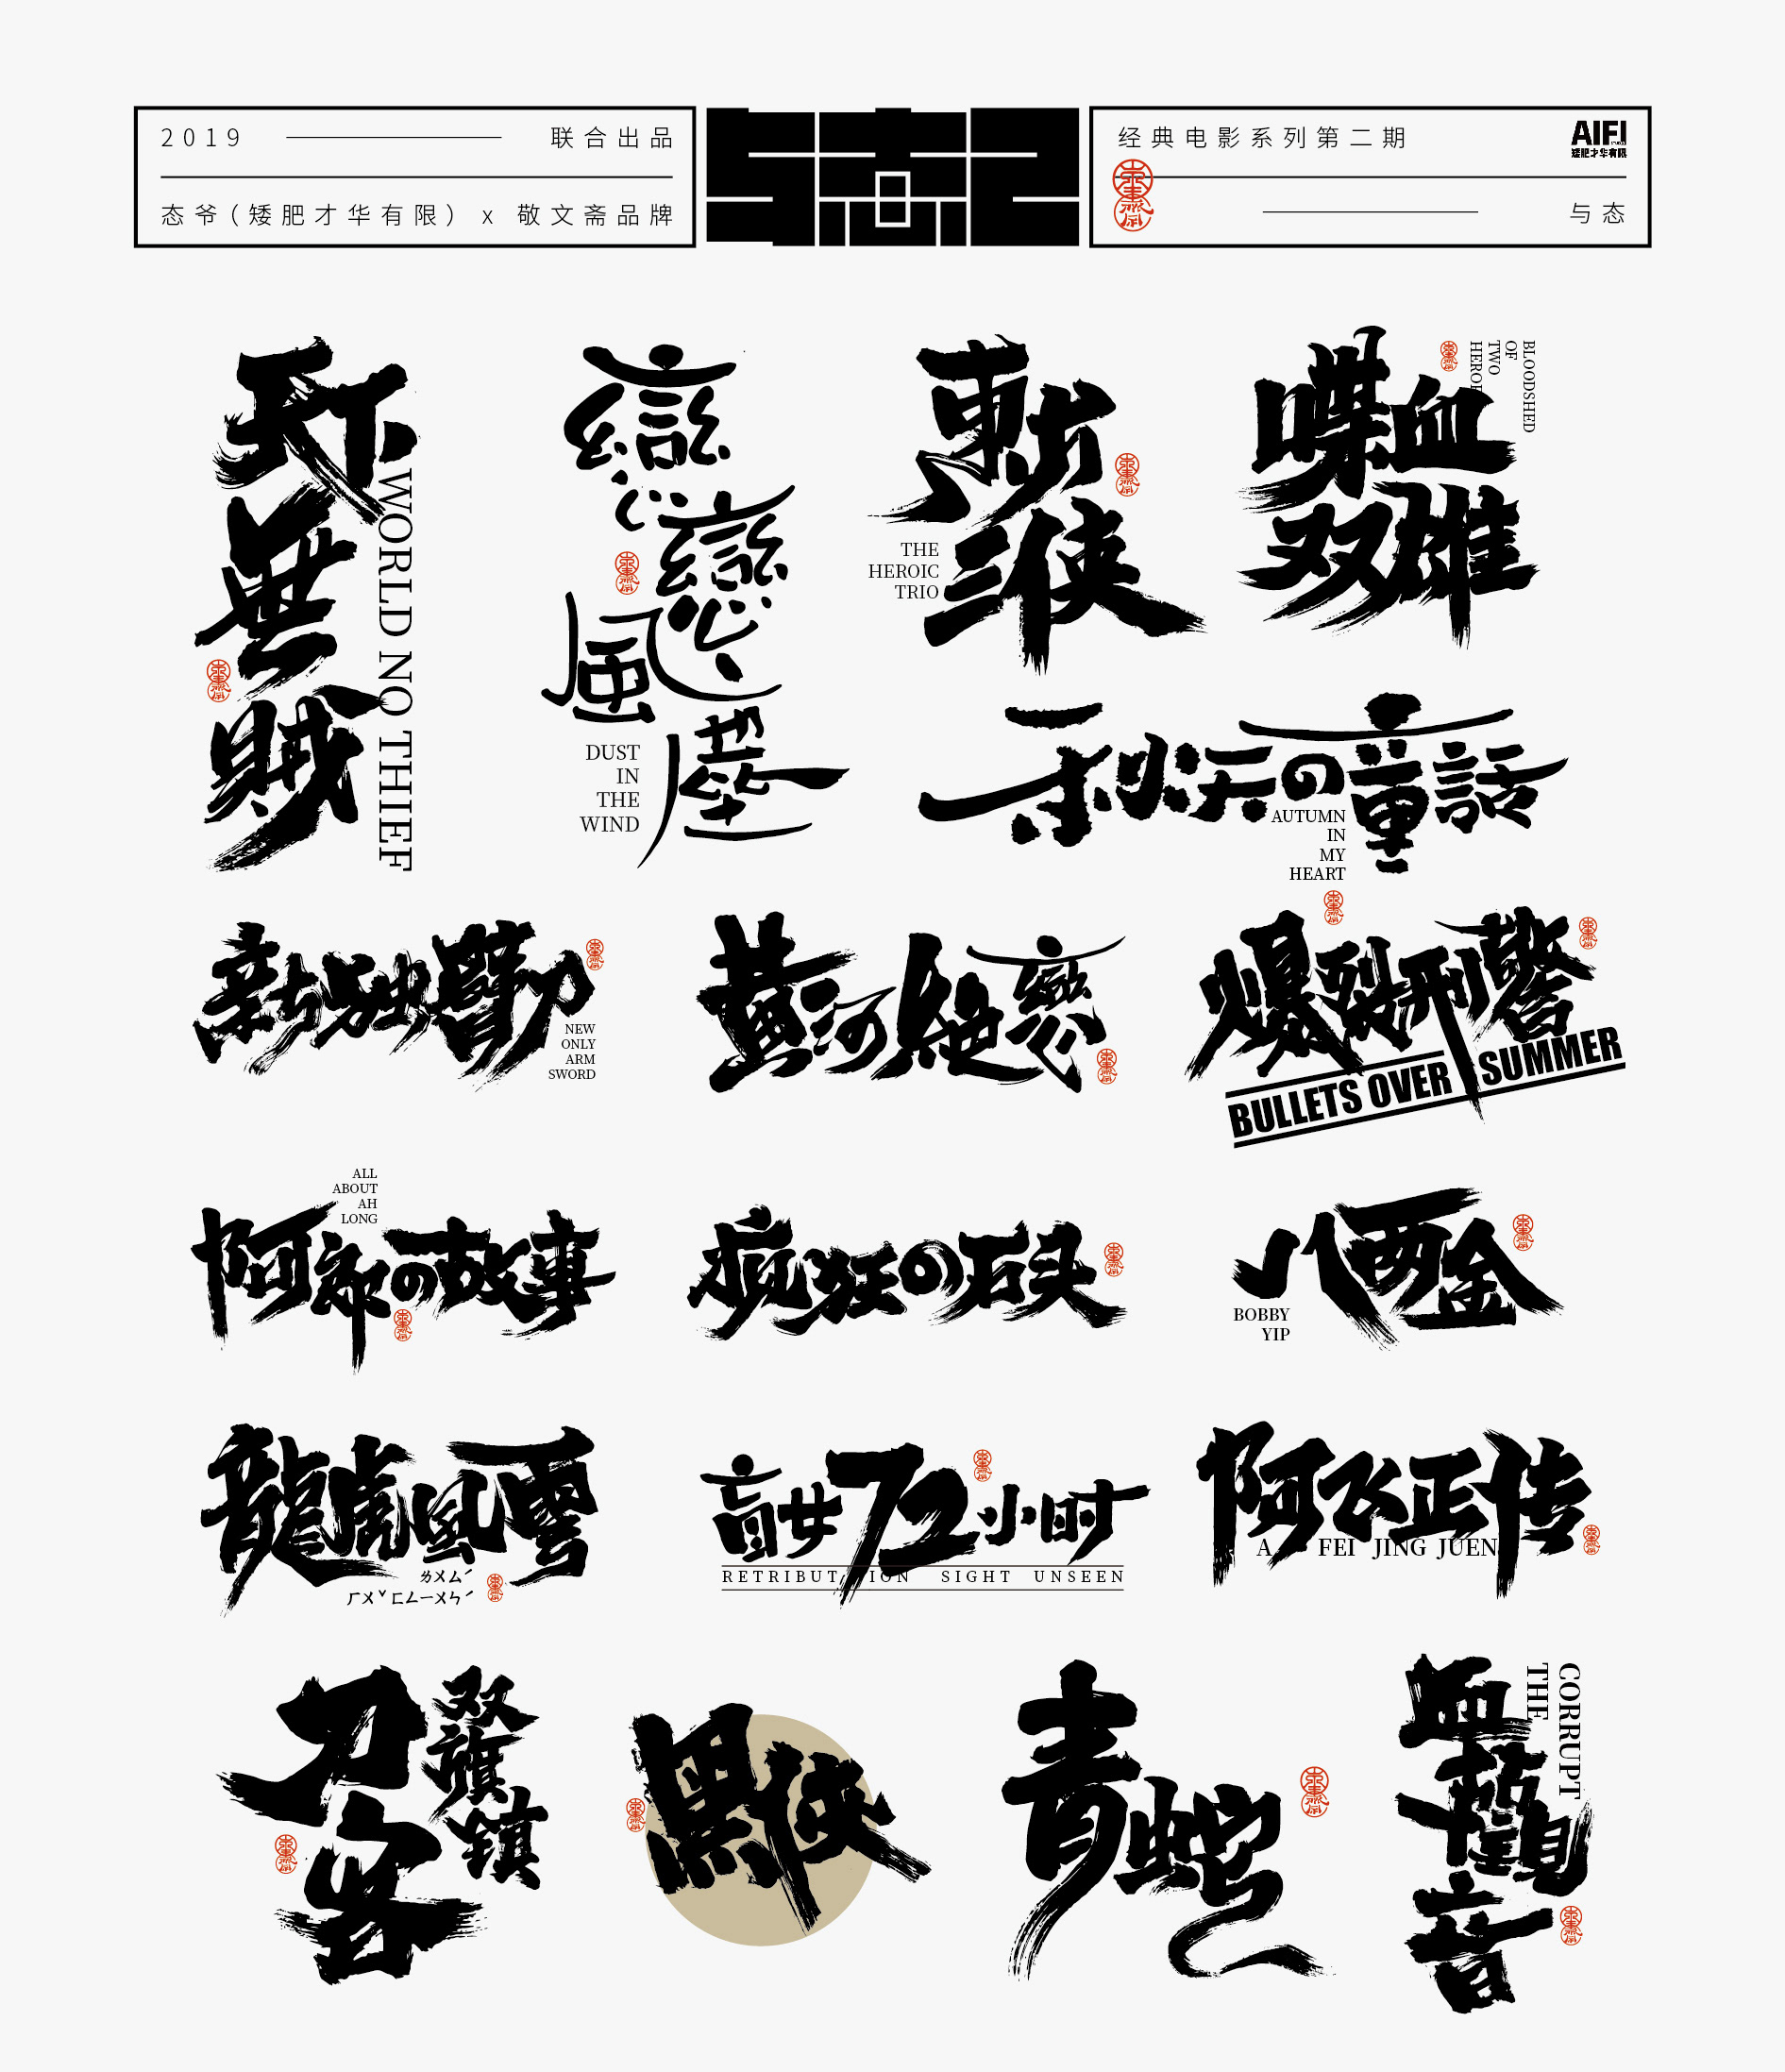 2019
联合出品
态爷(矮肥才华有限) x 敬文斋品牌
经典电影系列第二期
AIFI
矮肥才华有限
与态
天下
無
賊
WORLD NO THIEF
戀
戀
風
塵
DUST
IN
THE
WIND
東方
三俠
THE
HEROIC
TRIO
喋血
双雄
BLOODSHED
OF
TWO
秋天の童話
AUTUMN
IN
MY
HEART
新独臂刀
NEW
ONLY
ARM
SWORD
黄河絕戀
爆裂刑警
BULLETS OVER SUMMER
ALL
ABOUT
AH
LONG
阿郎の故事
疯狂の石头
八两金
BOBBY
YIP
龍虎風雲
ㄌㄨㄥˊ
ㄏㄨˇ ㄈㄥ ㄧㄨㄣˊ
盲女72小时
RETRIBUTION SIGHT UNSEEN
阿飞正传
A FEI JING JUEN
双旗镇
刀客
黑侠
青蛇
血
觀
音
THE
CORRUPT